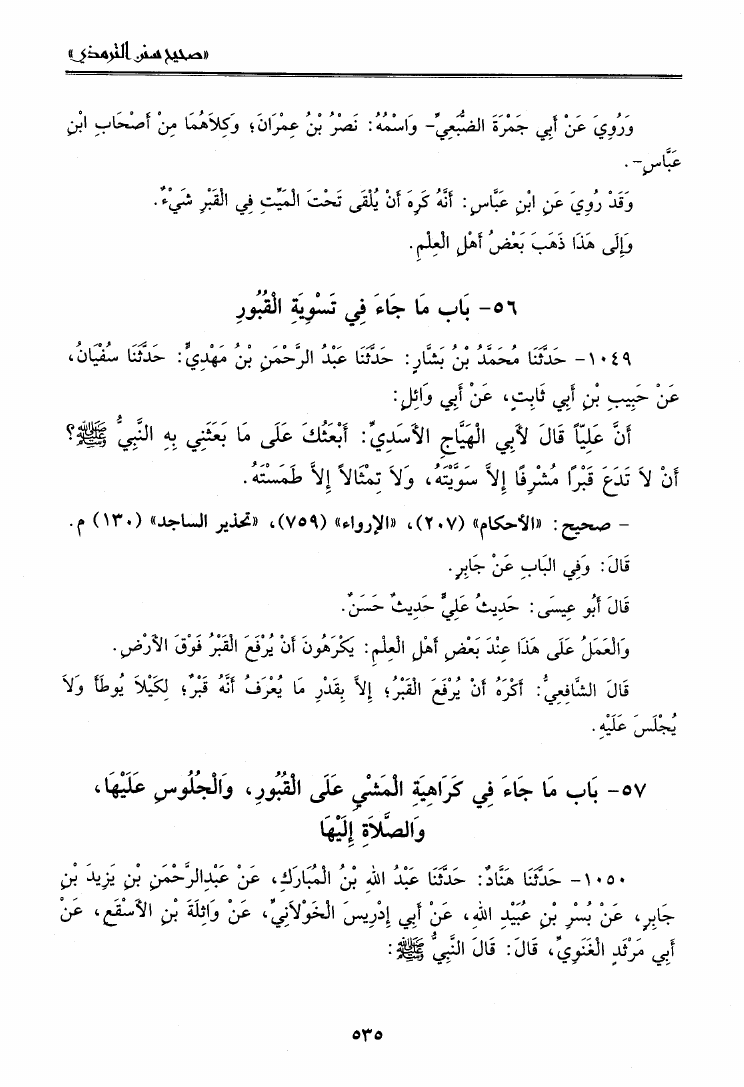 «صحيح سنن الترمذي»
وَرُوِيَ عَنْ أَبِي جَمْرَةَ الضُّبَعِيِّ- وَاسْمُهُ: نَصْرُ بْنُ عِمْرَانَ؛ وَكِلَاهُمَا مِنْ أَصْحَابِ ابْنِ
عَبَّاسٍ-.
وَقَدْ رُوِيَ عَنِ ابْنِ عَبَّاسٍ: أَنَّهُ كَرِهَ أَنْ يُلْقَى تَحْتَ الْمَيِّتِ فِي الْقَبْرِ شَيْءٌ.
وَإِلَى هَذَا ذَهَبَ بَعْضُ أَهْلِ الْعِلْمِ.
٥٦- بَاب مَا جَاءَ فِي تَسْوِيَةِ الْقُبُورِ
١٠٤٩- حَدَّثَنَا مُحَمَّدُ بْنُ بَشَّارٍ: حَدَّثَنَا عَبْدُ الرَّحْمَنِ بْنُ مَهْدِيٍّ: حَدَّثَنَا سُفْيَانُ،
عَنْ حَبِيبِ بْنِ أَبِي ثَابِتٍ، عَنْ أَبِي وَائِلٍ:
أَنَّ عَلِيّاً قَالَ لأَبِي الْهَيَّاجِ الأَسَدِيِّ: أَبْعَثُكَ عَلَى مَا بَعَثَنِي بِهِ النَّبِيُّ ﷺ؟
أَنْ لاَ تَدَعَ قَبْرًا مُشْرِفًا إِلاَّ سَوَّيْتَهُ، وَلاَ تِمْثَالاً إِلاَّ طَمَسْتَهُ.
- صحيح: «الأحكام» (٢٠٧)، «الإرواء» (٧٥٩)، «تحذير الساجد» (١٣٠) م.
قَالَ: وَفِي الْبَابِ عَنْ جَابِرٍ.
قَالَ أَبُو عِيسَى: حَدِيثُ عَلِيٍّ حَدِيثٌ حَسَنٌ.
وَالْعَمَلُ عَلَى هَذَا عِنْدَ بَعْضِ أَهْلِ الْعِلْمِ: يَكْرَهُونَ أَنْ يُرْفَعَ الْقَبْرُ فَوْقَ الأَرْضِ.
قَالَ الشَّافِعِيُّ: أَكْرَهُ أَنْ يُرْفَعَ الْقَبْرُ؛ إِلاَّ بِقَدْرِ مَا يُعْرَفُ أَنَّهُ قَبْرٌ؛ لِكَيْلاَ يُوطَأَ وَلاَ
يُجْلَسَ عَلَيْهِ.
٥٧- بَاب مَا جَاءَ فِي كَرَاهِيَةِ الْمَشْيِ عَلَى الْقُبُورِ، وَالْجُلُوسِ عَلَيْهَا،
وَالصَّلاَةِ إِلَيْهَا
١٠٥٠- حَدَّثَنَا هَنَّادٌ: حَدَّثَنَا عَبْدُ اللهِ بْنُ الْمُبَارَكِ، عَنْ عَبْدِالرَّحْمَنِ بْنِ يَزِيدَ بْنِ
جَابِرٍ، عَنْ بُسْرِ بْنِ عُبَيْدِ اللهِ، عَنْ أَبِي إِدْرِيسَ الْخَوْلاَنِيِّ، عَنْ وَاثِلَةَ بْنِ الأَسْقَعِ، عَنْ
أَبِي مَرْثَدٍ الْغَنَوِيِّ، قَالَ: قَالَ النَّبِيُّ ﷺ:
٥٣٥